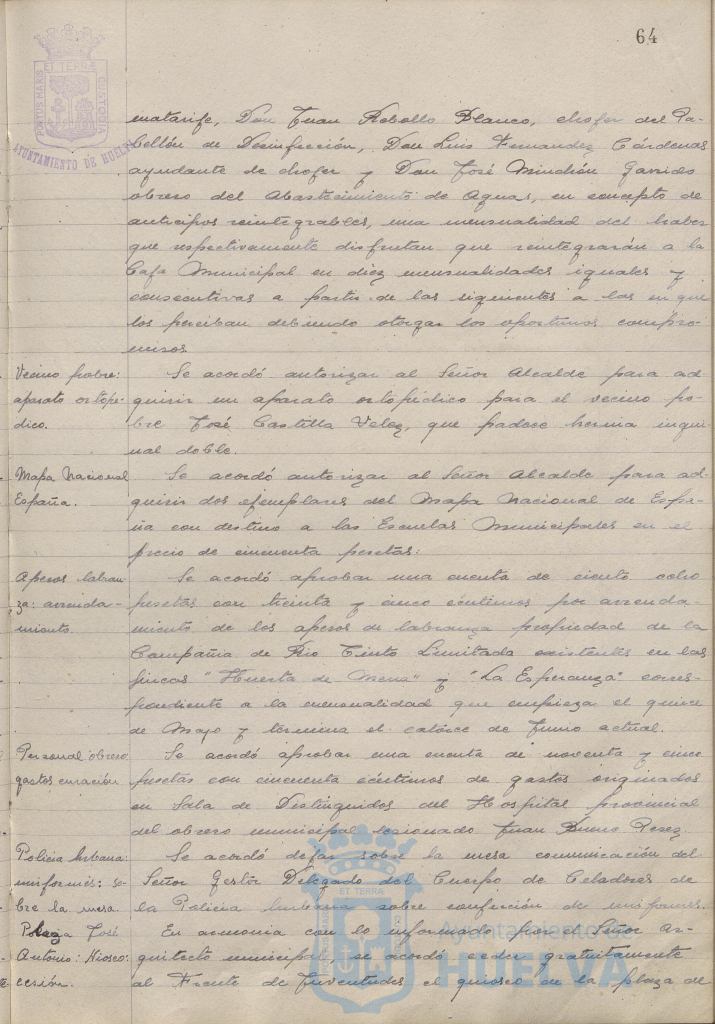 64
PORTUS MARIS ET TERRÆ CUSTODIA
AYUNTAMIENTO DE HUELVA
matarife, Don Juan Rebollo Blanco, chofer del Pa-
bellón de Desinfección, Don Luis Fernandez Cárdenas
ayudante de chofer y Don José Mindión Garrido
obrero del Abastecimiento de Aguas, en concepto de
anticipos reintegrables, una mensualidad del haber
que respectivamente disfrutan que reintegrarán a la
Caja Municipal en diez mensualidades iguales y
consecutivas a partir de las siguientes a las en que
los perciban debiendo otorgar los oportunos compro-
misos.
Vecino pobre:
aparato ortopé-
dico.
Se acordó autorizar al Señor Alcalde para ad-
quirir un aparato ortopédico para el vecino po-
bre José Castilla Velez, que padece hernia ingui-
nal doble.
Mapa Nacional
España.
Se acordó autorizar al Señor Alcalde para ad-
quirir dos ejemplares del Mapa Nacional de Espa-
ña con destino a las Escuelas Municipales en el
precio de cincuenta pesetas:
Aperos labran-
za: arrenda-
miento.
Se acordó aprobar una cuenta de ciento ocho
pesetas con treinta y cinco céntimos por arrenda-
miento de los aperos de labranza propiedad de la
Compañia de Rio Tinto Limitada existentes en las
fincas "Huerta de Mena" y "La Esperanza" corres-
pondiente a la mensualidad que empieza el quince
de Mayo y termina el catórce de Junio actual.
Personal obrero
gastos curación
Se acordó aprobar una cuenta de noventa y cinco
pesetas con cincuenta céntimos de gastos originados
en Sala de Distinguidos del Hospital provincial
del obrero municipal lesionado Juan Bueno Perez.
Policia Urbana:
uniformes: so-
bre la mesa.
Se acordó dejar sobre la mesa comunicación del
Señor Gestor Delegado del Cuerpo de Celadores de
la Policia Urbana sobre confección de uniformes.
Plaza José
Antonio: Kiosco:
cesión.
En armonia con lo informado por el Señor Ar-
quitecto municipal, se acordó ceder gratuitamente
al Frente de Juventudes el quiosco de la plaza de
Ayuntamiento de
HUELVA